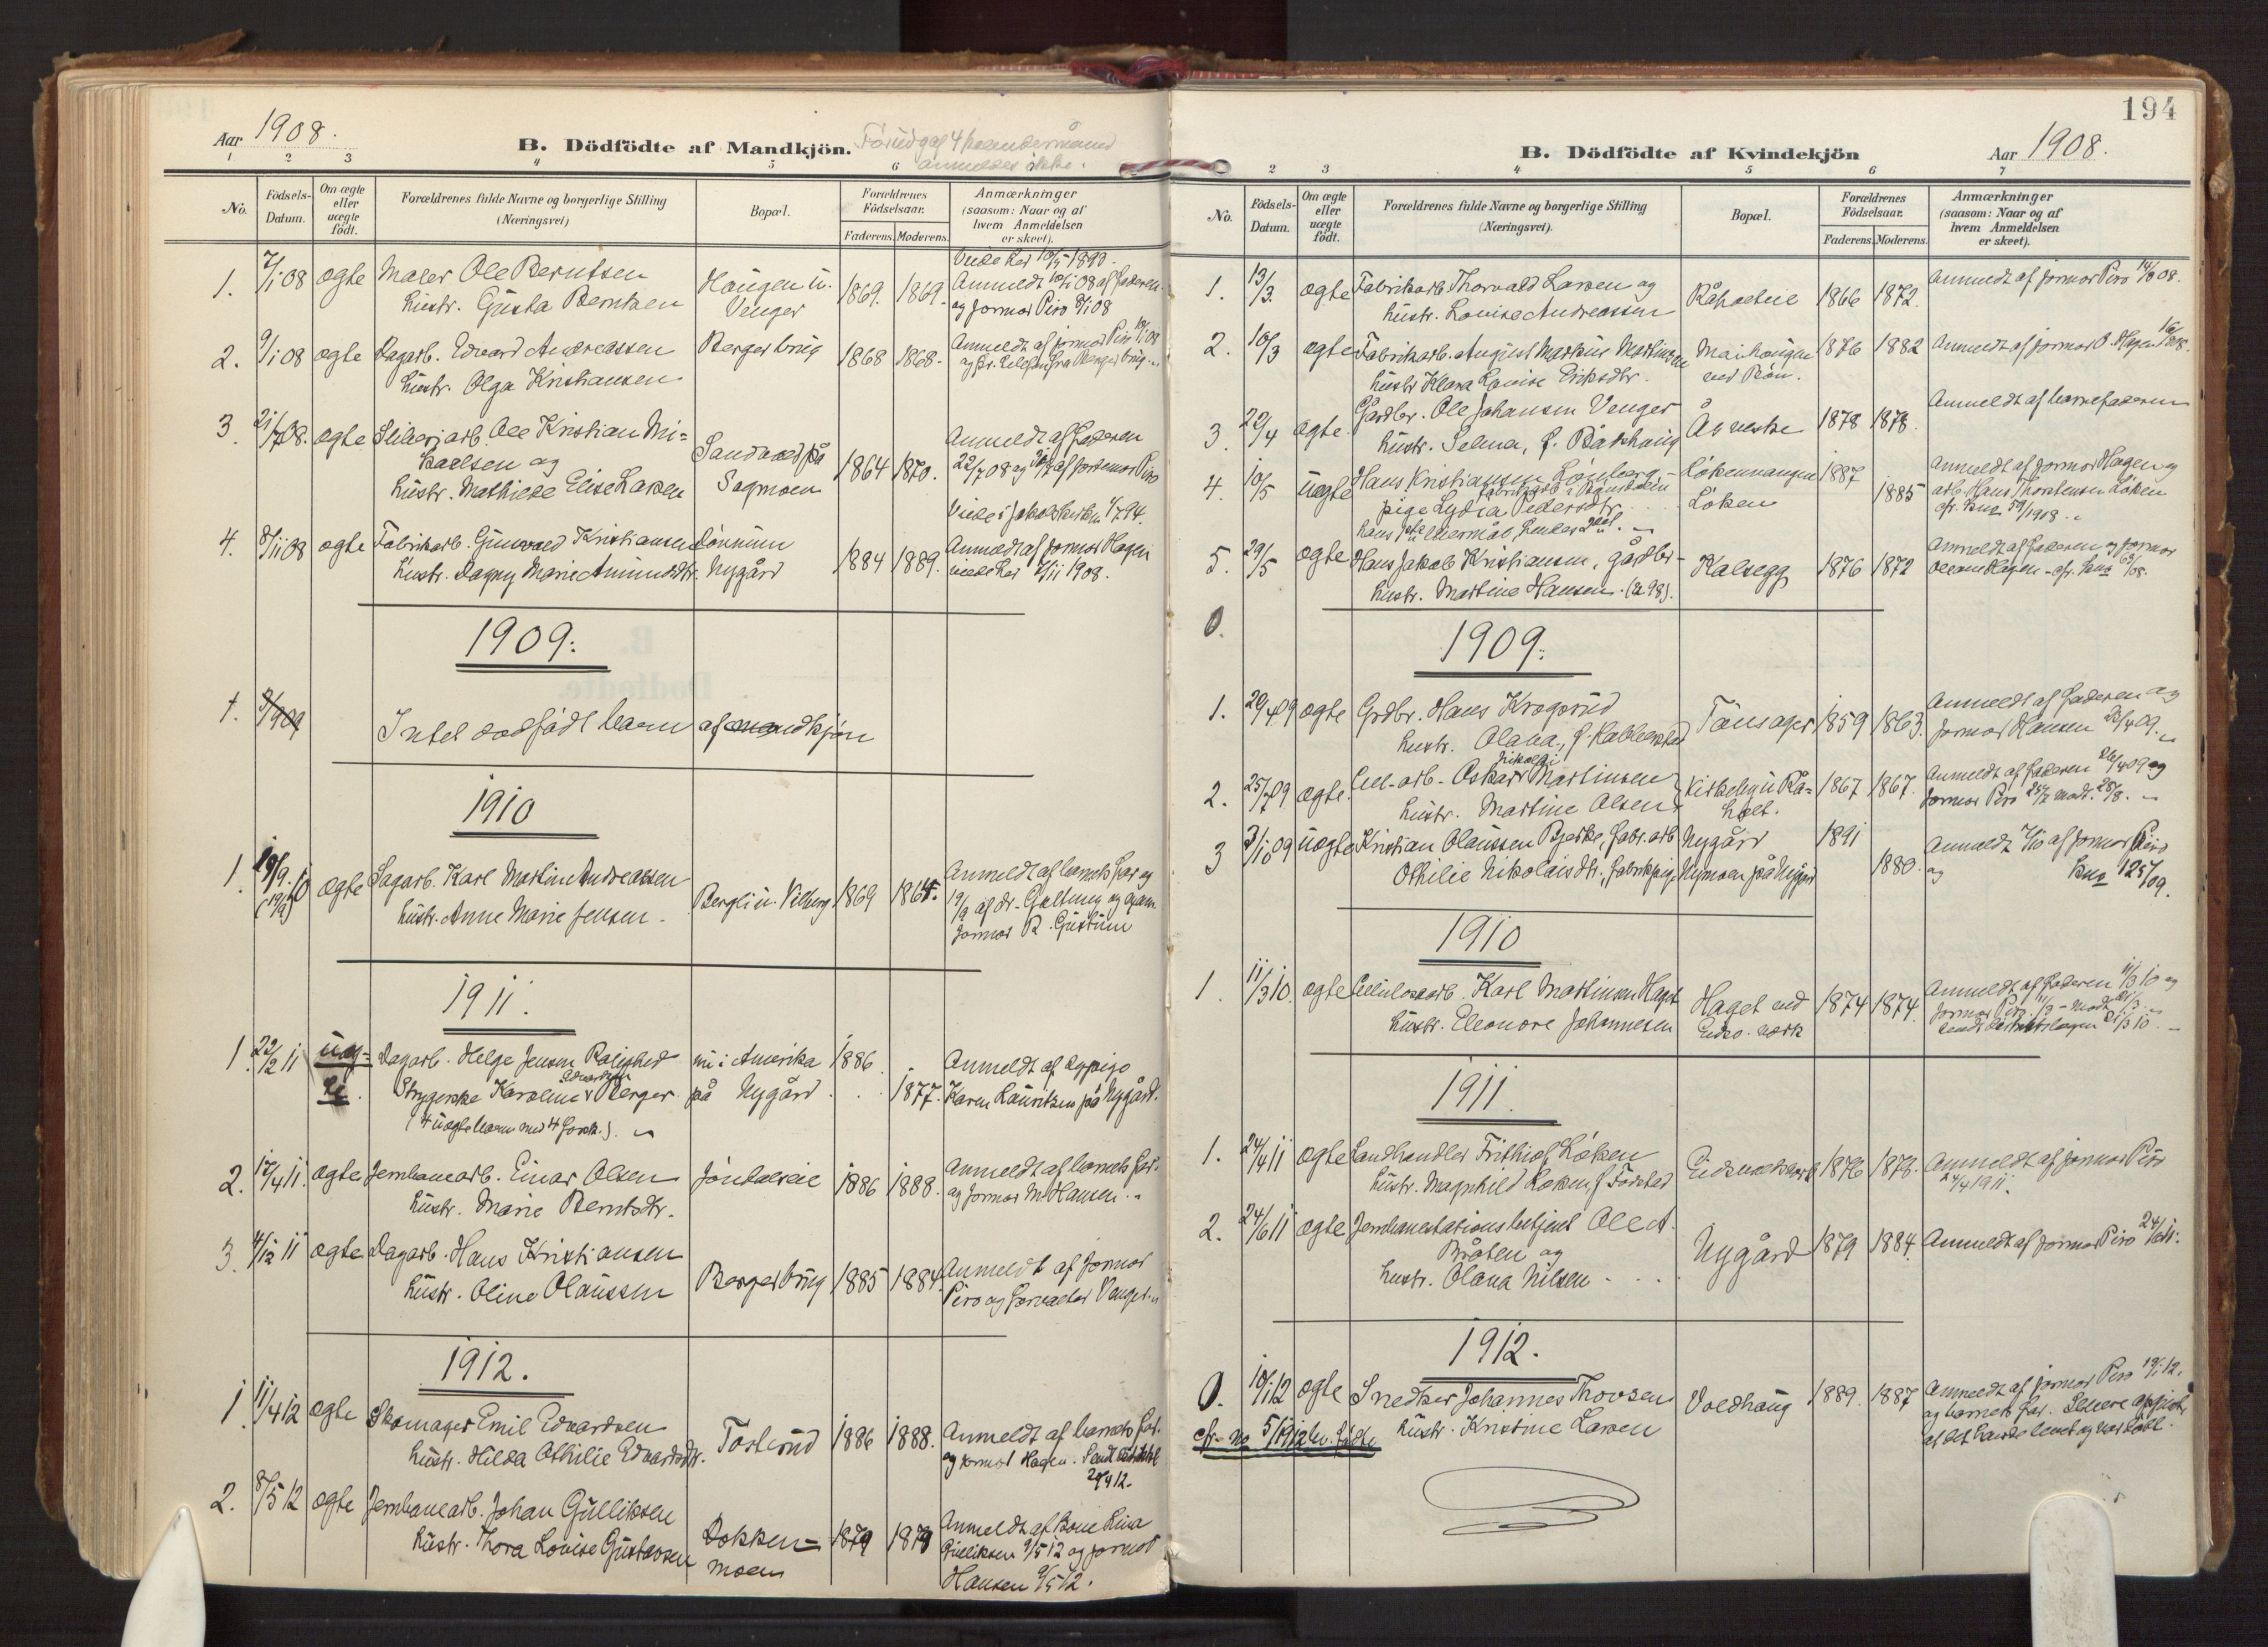 Aar 1908.
B. Dödfödte af Mandkjön.
1 2 3 4 5 6
No.
Födsels-Datum.
Om ægte eller uægte födt.
Forældrenes fulde Navne og borgerlige Stilling
(Næringsvei)
Bopæl.
Forældrenes Födselsaar.
Faderens. Moderens.
Anmærkninger
(saasom: Naar og af
hvem Anmeldelsen
er skeet).
1. 7/1 08 ægte Maler Ole Berntsen
hustr. Gusta Berntsen
Haugen u. Venger 1869. 1869.
Anmeldt 10/1 08 af faderen
og jormor Piro 8/1 08
2. 9/1 08 ægte Dagarb. Edvard Andreassen
hustr. Olga Kristiansen
Bergerbrug 1868 1868.
Anmeldt af jormor Piro 10/1 08
3. 21/7 08. ægte Sliberiarb. Ole Kristian Mi=
kaelsen og
hustr. Mathilde Elise Larsen
Sandvold på
Sagmoen 1864 1870.
Anmeldt af faderen
22/7 08 og af jordemor Piro
4. 8/11 08 ægte Fabrikarb. Gunvald Kristiansen
hustr. Dagny Marie Amundsdtr.
Lönnum
Nygård 1884 1889.
Anmeldt af jormor Hagen
1909.
1. 3/1909
Intet dødfødt barn af mandkjøn
1910
1. 19/9.10 ægte Sagarb. Karl Martin Andreassen
hustr. Anne Marie Jensen
Bergli u. Vilberg 1869 1864.
Anmeldt af barnets far og
jormor R. Gustum
1911.
1. 22/2 11 uæg=
te.
Dagarb. Helge Jensen Rolighed
nu i Amerika 1886
Strygerske Karoline Edvardsen Berger
på Nygård 1877.
(4 uægte barn med 4 forsk.)
Anmeldt af
Karen Lauritzen på Nygård.
2. 17/4 11. ægte Jernbanearb. Einar Olsen
hustr. Marie Berntsdtr.
Jöndalseie 1886 1888.
Anmeldt af barnets far
og jormor M. Hansen.
3. 4/12 11 ægte Dagarb. Hans Kristiansen
hustr. Oline Olaussen
Bergerbrug 1885 1884.
Anmeldt af jormor
Piro og forvalter Venger.
1912.
1 11/4 12 ægte Skomager Emil Edvardsen
hustr. Hilda Othilie Edvardsdtr.
Toslerud 1886 1888.
Anmeldt af barnets far.
og jormor Hagen.
2. 8/5 12 ægte Jernbanearb. Johan Gulliksen
hustr. Thora Lovise Gustavsen
Dokken=
moen 1879 1879
Anmeldt af kone Lina
Gulliksen 9/5 12 og jormor
Hansen 9/5 12.
194
B. Dödfödte af Kvindekjön
Aar 1908.
2 3 4 5 6 7
No.
Födsels-Datum.
Om ægte eller uægte födt.
Forældrenes fulde Navne og borgerlige Stilling
(Næringsvei).
Bopæl.
Forældrenes Födselsaar.
Faderens. Moderens.
Anmærkninger
(saasom: Naar og af
hvem Anmeldelsen
er skeet).
1. 13/3. ægte Fabrikarb. Thorvald Larsen og
hustr. Lovise Andreassen
Råholteie 1866 1872.
Anmeldt af jormor Piro 14/3 08.
2. 10/3 ægte Fabrikarb. August Markus Martinsen
hustr. Klara Lovise Eriksdtr.
Maihaugen
ved Bön. 1876 1882
Anmeldt af jormor O. Hagen
3. 22/4 ægte. Gårdbr. Ole Johansen Venger
hustr. Selma, f. Båkhaug
Ås vestre 1878 1878.
Anmeldt af barnefaderen
4. 10/5 uægte Hans Kristiansen Lönberg
pige Lydia Pedersdtr.
Lökenvangen 1887
Löken 1885
Anmeldt af jormor Hagen og
arb. Hans Thorstensen Löken
5. 29/5 ægte Hans Jakob Kristiansen, gårdbr
hustr. Martine Hansen. (a 98).
Kalsegg 1876 1872
Anmeldt af faderen og jormor
0.
1909.
1. 20/4 09 ægte Grdbr. Hans Krogsrud
hustr. Olava, f.
Tönsager 1859 1863.
Anmeldt af faderen og
jormor Hansen 20/4 09.
2. 25/7 09 ægte. Cell-arb. Oskar Nikolai Martinsen
hustr. Martine Olsen
Kirkeby u Rå=
holt. 1867 1867.
Anmeldt af faderen
3 3/10 09 uægte Kristian Olaussen Bjerke, fabr.arb
Nygård 1891
Othilie Nikolaisdtr., fabrikpige
Nymoen på Nygård 1880.
Anmeldt 4/10 af jormor Piro
og
1910
1. 11/3 10. ægte Cellulosearb. Karl Martinsen Haget
hustr. Eleonore Johannesen
Haget ved
Eidsv.værk 1874 1874.
Anmeldt af faderen 11/3 10 og
1911.
1. 24/4 11 ægte Landhandler Frithjof Löken
hustr. Magnhild Löken f.
Eidsvoldsværk 1876 1878.
Anmeldt af jormor Piro
24/4 1911.
2. 24/6 11 ægte Jernbanestationsbetjent Ole A.
Bråten og
hustr. Olava Nilsen
Nygård 1879 1884.
Anmeldt af jormor Piro 24/6 11.
1912.
0. 10/1 12 ægte Snedker Johannes Thovsen
hustr. Kristine Larsen
Voldhaug 1889. 1887
Anmeldt af jormor Piro
og barnets far. Senere opgivet,
at det havde levet og var döbt.
cfr. no 5/1912